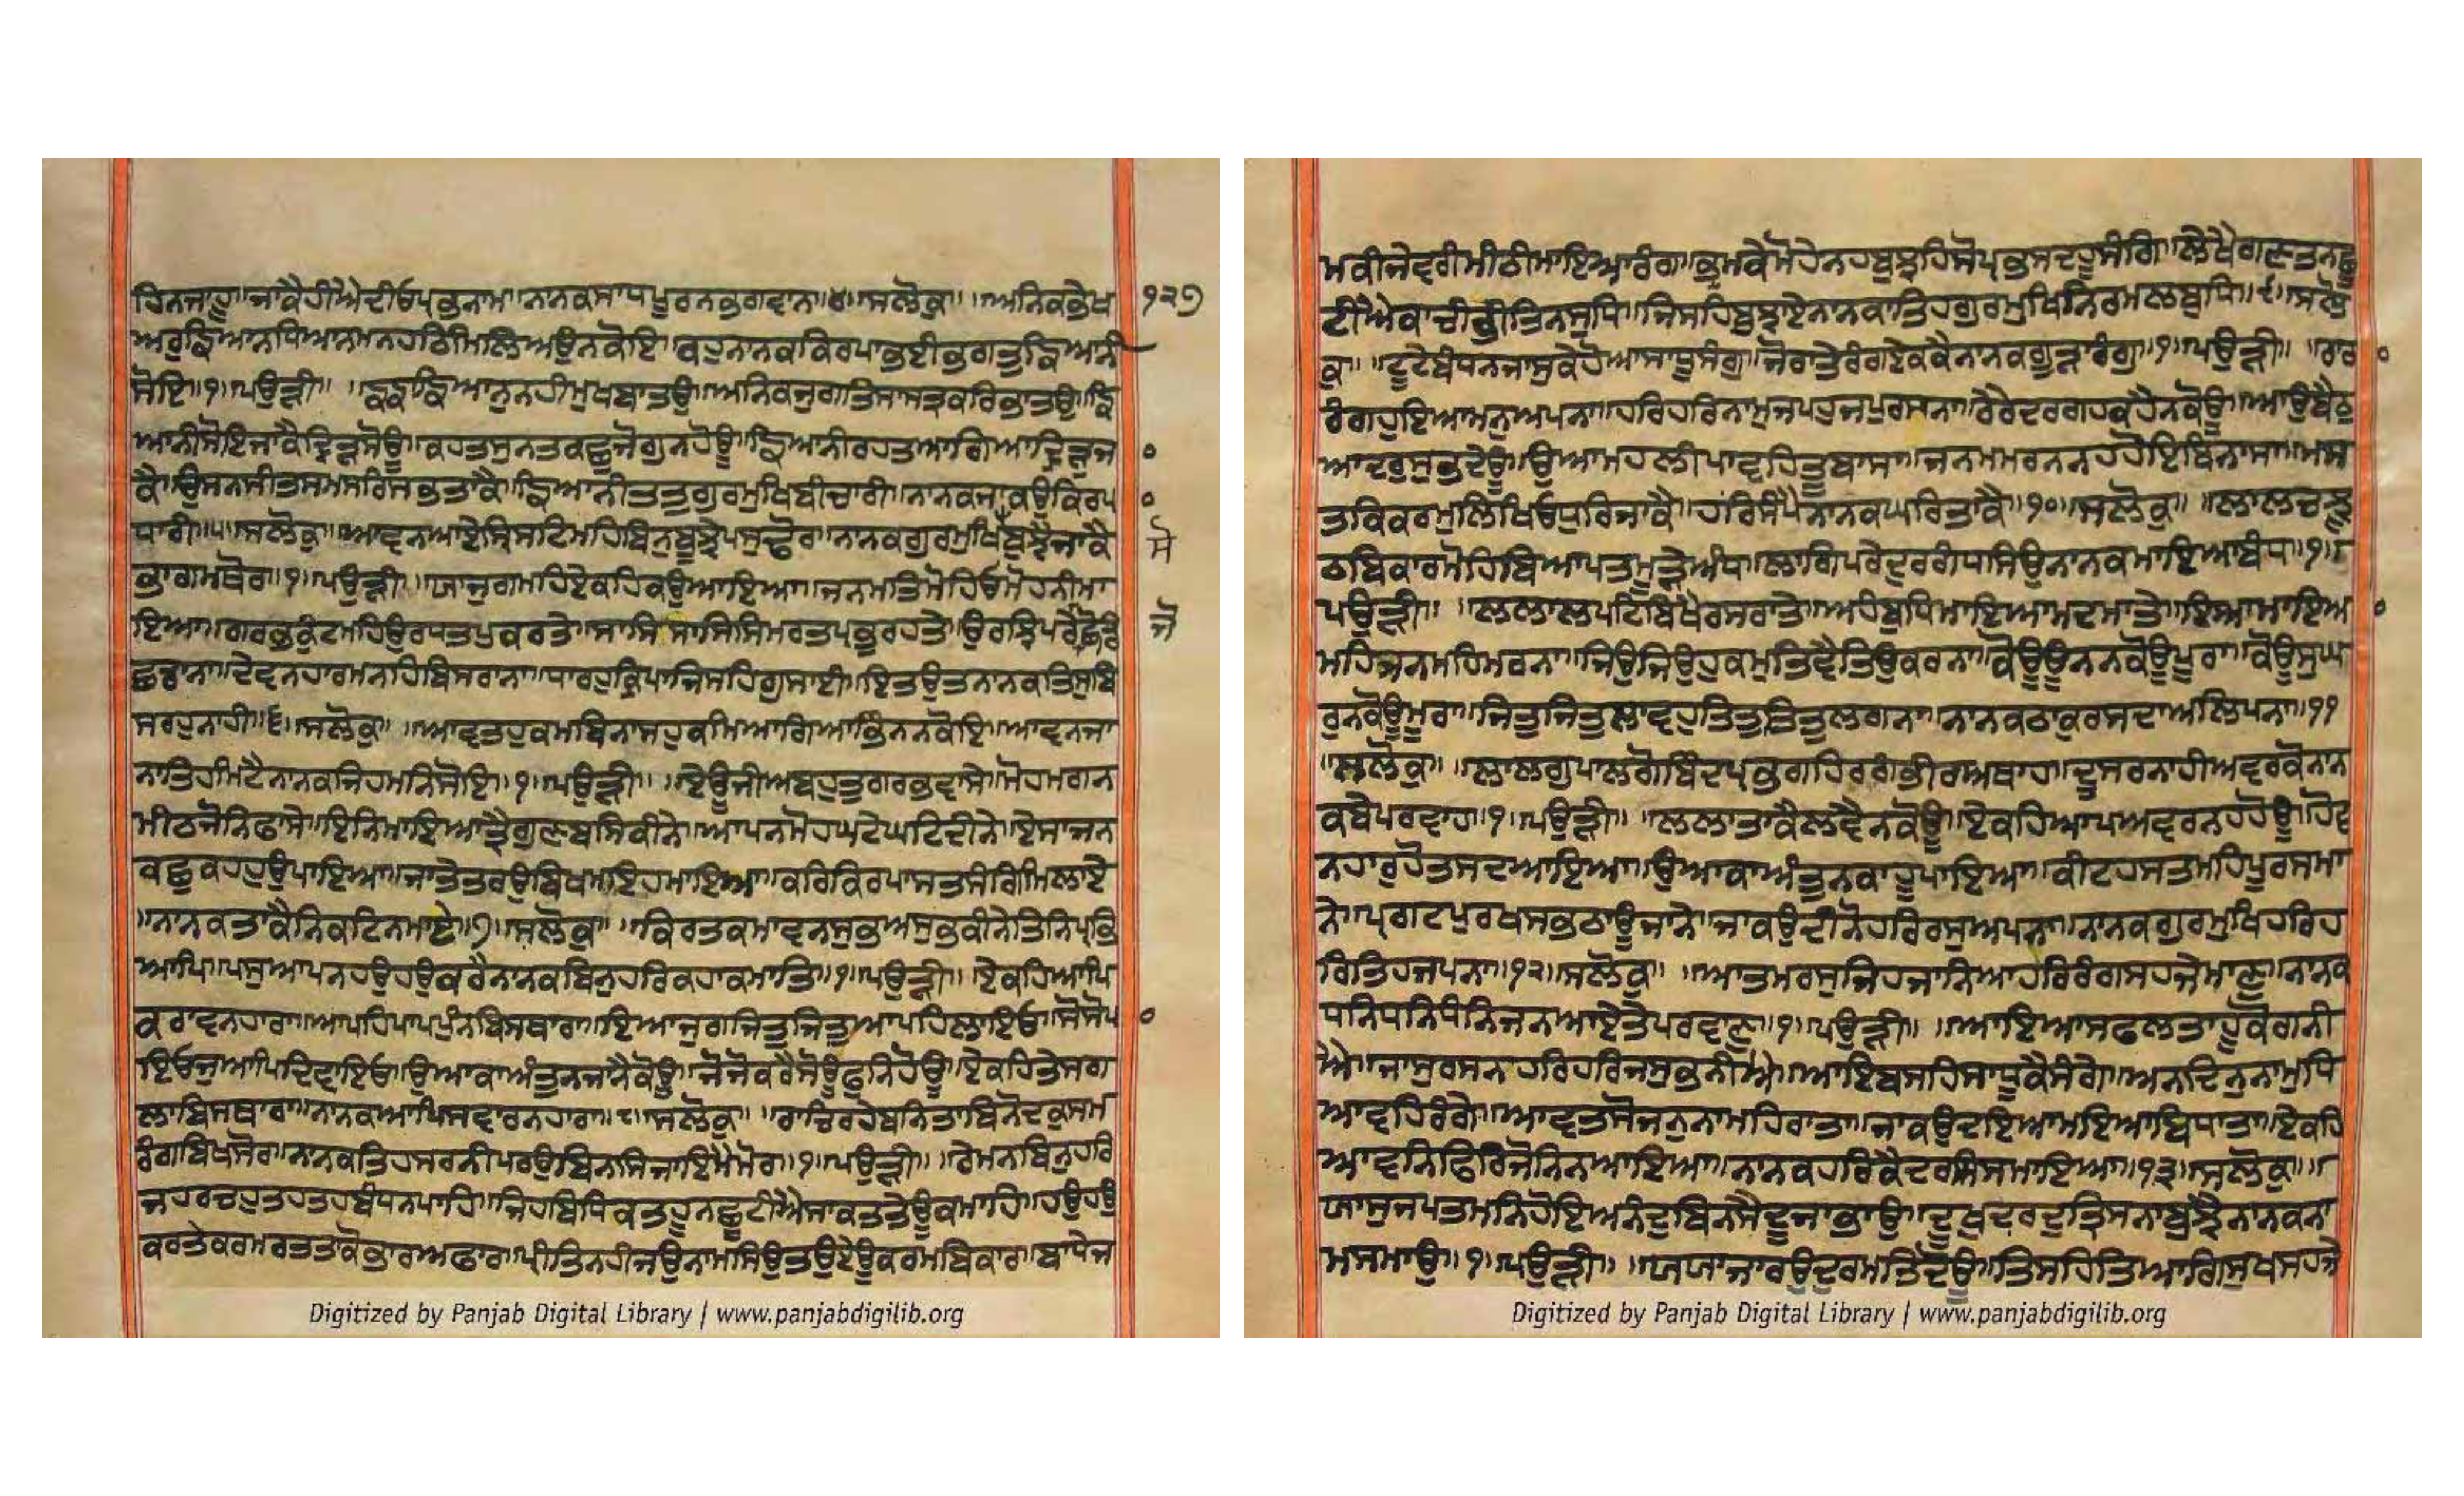 ਹਿਨਜਾਹੂ॥ਜਾਕੈਹੀਐਦੀਓਪ੍ਰਭਨਾਮ॥ਨਾਨਕਸਾਧਪੂਰਨਭਗਵਾਨ॥੪॥ਸਲੋਕੁ॥ ॥ਅਨਿਕਭੇਖ
੧੨੭
ਅਰੁਙਿਆਨਧਿਆਨਮਨਹਠਿਮਿਲਿਅਉਨਕੋਇ॥ਕਹੁਨਾਨਕਕਿਰਪਾਭਈਭਗਤੁਙਿਆਨੀ
ਸੋਇ॥੧॥ਪਉੜੀ॥ ॥ਙਙਾਙਿਆਨੁਨਹੀਮੁਖਬਾਤਉ॥ਅਨਿਕਜੁਗਤਿਸਾਸਤ੍ਰਕਰਿਭਾਤਉ॥ਙਿ
ਆਨੀਸੋਇਜਾਕੈਦ੍ਰਿੜਸੋਊ॥ਕਹਤਸੁਨਤਕਛੁਜੋਗੁਨਹੋਊ॥ਙਿਆਨੀਰਹਤਆਗਿਆਦ੍ਰਿੜੁਜਾ
ਕੈ॥ਉਸਨਸੀਤਸਮਸਰਿਸਭਤਾਕੈ॥ਙਿਆਨੀਤਤੁਗੁਰਮੁਖਿਬੀਚਾਰੀ॥ਨਾਨਕਜਾਕਉਕਿਰਪਾ
ਧਾਰੀ॥੫॥ਸਲੋਕੁ॥ਆਵਨਆਏਸ੍ਰਿਸਟਿਮਹਿਬਿਨੁਬੂਝੇਪਸੁਢੋਰ॥ਨਾਨਕਗੁਰਮੁਖਿਬੁਝੈਜਾਕੈ
ਸੋ
ਭਾਗਮਥੋਰ॥੧॥ਪਉੜੀ॥ ॥ਯਾਜੁਗਮਹਿਏਕਹਿਕਉਆਇਆ॥ਜਨਮਤਮੋਹਿਓਮੋਹਨੀਮਾ
ਇਆ॥ਗਰਭਕੁੰਟਮਹਿਉਰਧਤਪੁਕਰਤੇ॥ਸਾਸਿਸਾਸਿਸਿਮਰਤਪ੍ਰਭੁਰਹਤੇ॥ਉਰਝਿਪਰੇਛੋਡਿ
ਜੋ
ਛਡਾਨਾ॥ਦੇਵਨਹਾਰਮਨਹਿਬਿਸਰਾਨਾ॥ਧਾਰਹੁਕਿਰਪਾਜਿਸਹਿਗੁਸਾਈ॥ਇਤਉਤਨਾਨਕਤਿਸੁਬਿ
ਸਰਹੁਨਾਹੀ॥੬॥ਸਲੋਕੁ॥ ॥ਆਵਤਹੁਕਮਬਿਨਾਸਹੁਕਮਿਆਗਿਆਭਿੰਨਨਕੋਇ॥ਆਵਨਜਾ
ਨਾਤਿਹੀਮਿਟੈਨਾਨਕਜਿਹਮਨਿਸੋਇ॥੧॥ਪਉੜੀ॥ ॥ਏਊਜੀਅਬਹੁਤੁਗਰਭਵਾਸੇ॥ਮੋਹਮਗਨ
ਮੀਠਜੋਨਿਫਾਸੇ॥ਇਨਿਮਾਇਆਤ੍ਰੈਗੁਣਬਸਿਕੀਨੇ॥ਆਪਨਮੋਹਘਟੇਘਟਿਦੀਨੇ॥ਏਸਾਜਨ
ਕਛੁਕਹਹੁਉਪਾਇਆ॥ਜਾਤੇਤਰਉਬਿਖਮਇਹਮਾਇਆ॥ਕਰਿਕਿਰਪਾਸਤਸੰਗਿਮਿਲਾਏ
॥ਨਾਨਕਤਾਕੈਨਿਕਟਿਨਮਾਏ॥੭॥ਸਲੋਕੁ॥ ॥ਕਿਰਤਕਮਾਵਨਸੁਭਅਸੁਭਕੀਨੇਤਿਨਿਪ੍ਰਭਿ
ਆਪਿ॥ਪਸੁਆਪਨਹਉਹਉਕਰੈਨਾਨਕਬਿਨੁਹਰਿਕਹਾਕਮਾਤਿ॥੧॥ਪਉੜੀ॥ ॥ਏਕਹਿਆਪਿ
ਕਰਾਵਨਹਾਰਾ॥ਆਪਹਿਪਾਪਪੁੰਨਬਿਸਥਾਰਾ॥ਇਆਜੁਗਜਿਤੁਜਿਤੁਆਪਹਿਲਾਇਓ॥ਸੋਸੋਪਾ
ਇਓਜੁਆਪਿਦਿਵਾਇਓ॥ਉਆਕਾਅੰਤੁਨਜਾਨੈਕੋਊ॥ਜੋਜੋਕਰੈਸੋਊਫੁਨਿਹੋਊ॥ਏਕਹਿਤੇਸਗ
ਲਾਬਿਸਥਾਰਾ॥ਨਾਨਕਆਪਿਸਵਾਰਨਹਾਰਾ॥੮॥ਸਲੋਕੁ॥ ॥ਰਾਚਿਰਹੇਬਨਿਤਾਬਿਨੋਦਕੁਸਮ
ਰੰਗਬਿਖਸੋਰ॥ਨਾਨਕਤਿਹਸਰਨੀਪਰਉਬਿਨਸਿਜਾਇਮੈਮੋਰ॥੧॥ਪਉੜੀ॥ ॥ਰੇਮਨਬਿਨੁਹਰਿ
ਜਹਰਚਹੁਤਹਤਹਬੰਧਨਪਾਹਿ॥ਜਿਹਬਿਧਿਕਤਹੂਨਛੂਟੀਐਸਾਕਤਤੇਊਕਮਾਹਿ॥ਹਉਹਉ
ਕਰਤੇਕਰਮਰਤਤਾਕੋਭਾਰਅਫਾਰ॥ਪ੍ਰੀਤਿਨਹੀਜਉਨਾਮਸਿਉਤਉਏਊਕਰਮਬਿਕਾਰ॥ਬਾਧੇਜ
ਮਕੀਜੇਵਰੀਮੀਠੀਮਾਇਆਰੰਗ॥ਭ੍ਰਮਕੇਮੋਹੇਨਹਬੁਝਹਿਸੋਪ੍ਰਭੁਸਦਹੂਸੰਗਿ॥ਲੇਖੈਗਣਤਨਛੂ
ਟੀਐਕਾਚੀਭੀਤਿਨਸੁਧਿ॥ਜਿਸਹਿਬੁਝਾਏਨਾਨਕਾਤਿਹਗੁਰਮੁਖਿਨਿਰਮਲਬੁਧਿ॥੯॥ਸਲੋ
ਕੁ॥ ॥ਟੂਟੇਬੰਧਨਜਾਸੁਕੇਹੋਆਸਾਧੂਸੰਗੁ॥ਜੋਰਾਤੇਰੰਗਏਕਕੈਨਾਨਕਗੂੜਾਰੰਗੁ॥੧॥ਪਉੜੀ॥ ॥ਰਾਰਾ
ਰੰਗਹੁਇਆਮਨੁਅਪਨਾ॥ਹਰਿਹਰਿਨਾਮੁਜਪਹੁਜਪੁਰਸਨਾ॥ਰੇਰੇਦਰਗਹਕਹੈਨਕੋਊ॥ਆਉਬੈਠੁ
ਆਦਰੁਸੁਭਦੇਊ॥ਉਆਮਹਲੀਪਾਵਹਿਤੂਬਾਸਾ॥ਜਨਮਮਰਨਨਹਹੋਇਬਿਨਾਸਾ॥ਮਸ
ਤਕਿਕਰਮੁਲਿਖਿਓਧੁਰਿਜਾਕੈ॥ਹਰਿਸੰਪੈਨਾਨਕਘਰਿਤਾਕੈ॥੧੦॥ਸਲੋਕੁ॥ ॥ਲਾਲਚਝੂ
ਠਬਿਕਾਰਮੋਹਬਿਆਪਤਮੂੜੇਅੰਧ॥ਲਾਗਿਪਰੇਦੁਰਗੰਧਸਿਉਨਾਨਕਮਾਇਆਬੰਧ॥੧॥
ਪਉੜੀ॥ ॥ਲਲਾਲਪਟਿਬਿਖੈਰਸਰਾਤੇ॥ਅਹੰਬੁਧਿਮਾਇਆਮਦਮਾਤੇ॥ਇਆਮਾਇਆ
ਮਹਿਜਨਮਹਿਮਰਨਾ॥ਜਿਉਜਿਉਹੁਕਮੁਤਿਵੈਤਿਉਕਰਨਾ॥ਕੋਊਊਨਨਕੋਊਪੂਰਾ॥ਕੋਊਸੁਘ
ਰੁਨਕੋਊਮੂਰਾ॥ਜਿਤੁਜਿਤੁਲਾਵਹੁਤਿਤੁਤਿਤੁਲਗਨਾ॥ਨਾਨਕਠਾਕੁਰਸਦਾਅਲਿਪਨਾ॥੧੧
॥ਸਲੋਕੁ॥ ॥ਲਾਲਗੁਪਾਲਗੋਬਿੰਦਪ੍ਰਭਗਹਿਰਗੰਭੀਰਅਥਾਹ॥ਦੂਸਰਨਾਹੀਅਵਰਕੋਨਾਨ
ਕਬੇਪਰਵਾਹ॥੧॥ਪਉੜੀ॥ ॥ਲਲਾਤਾਕੈਲਵੈਨਕੋਊ॥ਏਕਹਿਆਪਅਵਰਨਹਹੋਊ॥ਹੋਵ
ਨਹਾਰੁਹੋਤਸਦਆਇਆ॥ਉਆਕਾਅੰਤੁਨਕਾਹੂਪਾਇਆ॥ਕੀਟਹਸਤਮਹਿਪੂਰਸਮਾ
ਨੇ॥ਪ੍ਰਗਟਪੁਰਖਸਭਠਾਊਜਾਨੇ॥ਜਾਕਉਦੀਨੋਹਰਿਰਸੁਅਪਨਾ॥ਨਾਨਕਗੁਰਮੁਖਿਹਰਿਹ
ਰਿਤਿਹਜਪਨਾ॥੧੨॥ਸਲੋਕੁ॥ ॥ਆਤਮਰਸੁਜਿਹਜਾਨਿਆਹਰਿਰੰਗਸਹਜੇਮਾਣੁ॥ਨਾਨਕ
ਧਨਿਧਨਿਧੰਨਿਜਨਆਏਤੇਪਰਵਾਣੁ॥੧॥ਪਉੜੀ॥ ॥ਆਇਆਸਫਲਤਾਹੂਕੋਗਨੀ
ਐ॥ਜਾਸੁਰਸਨਹਰਿਹਰਿਜਸੁਭਨੀਐ॥ਆਇਬਸਹਿਸਾਧੂਕੈਸੰਗੇ॥ਅਨਦਿਨੁਨਾਮੁਧਿ
ਆਵਹਿਰੰਗੇ॥ਆਵਤਸੋਜਨੁਨਾਮਹਿਰਾਤਾ॥ਜਾਕਉਦਇਆਮਇਆਬਿਧਾਤਾ॥ਏਕਹਿ
ਆਵਨਿਫਿਰਿਜੋਨਿਨਆਇਆ॥ਨਾਨਕਹਰਿਕੈਦਰਸਿਸਮਾਇਆ॥੧੩॥ਸਲੋਕੁ॥॥
ਯਾਸੁਜਪਤਮਨਿਹੋਇਅਨੰਦੁਬਿਨਸੈਦੂਜਾਭਾਉ॥ਦੂਖਦਰਦਤ੍ਰਿਸਨਾਬੁਝੈਨਾਨਕਨਾ
ਮਸਮਾਉ॥੧॥ਪਉੜੀ॥ ॥ਯਯਾਜਾਰਉਦੁਰਮਤਿਦੋਊ॥ਤਿਸਹਿਤਿਆਗਿਸੁਖਸਹਜੇ
Digitized by Panjab Digital Library | www.panjabdigilib.org
Digitized by Panjab Digital Library | www.panjabdigilib.org